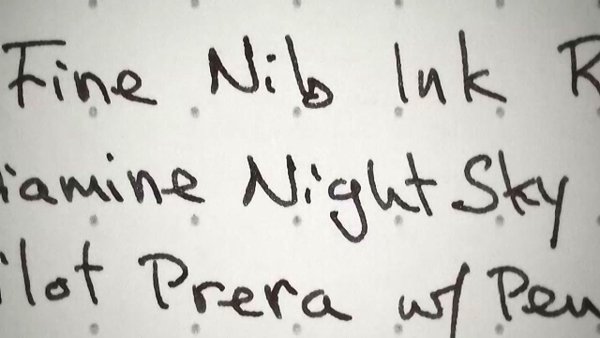 Fine Nib Ink R
iamine Night Sky
ilot Prera w/ Pen